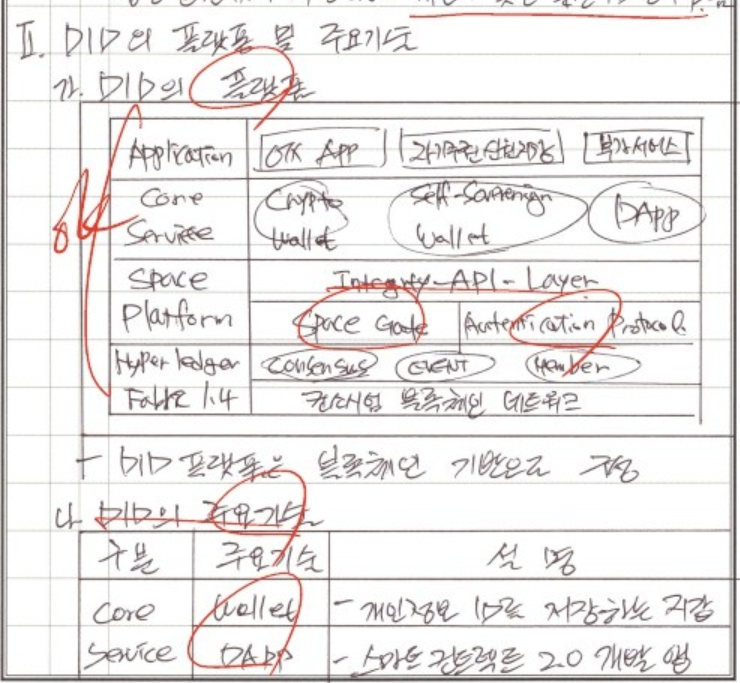 II. DID의 플랫폼 및 주요기술
가. DID의 플랫폼
Application OTK App 자기주권 신원저장 부가서비스
Core Service Crypto Wallet Self-Sovereign Wallet DApp
Space Platform Integrity-API-Layer
Space Gate Authentication Protocol
Hyperledger Fabric 1.4 Consensus EVENT Member
컨소시엄 블록체인 네트워크
- DID 플랫폼은 블록체인 기반으로
나. DID의 주요기술
구분 주요기술 설명
Core Service Wallet - 개인정보 ID를 저장하는 지갑
DAPP - 스마트 컨트랙트 2.0 개발 앱